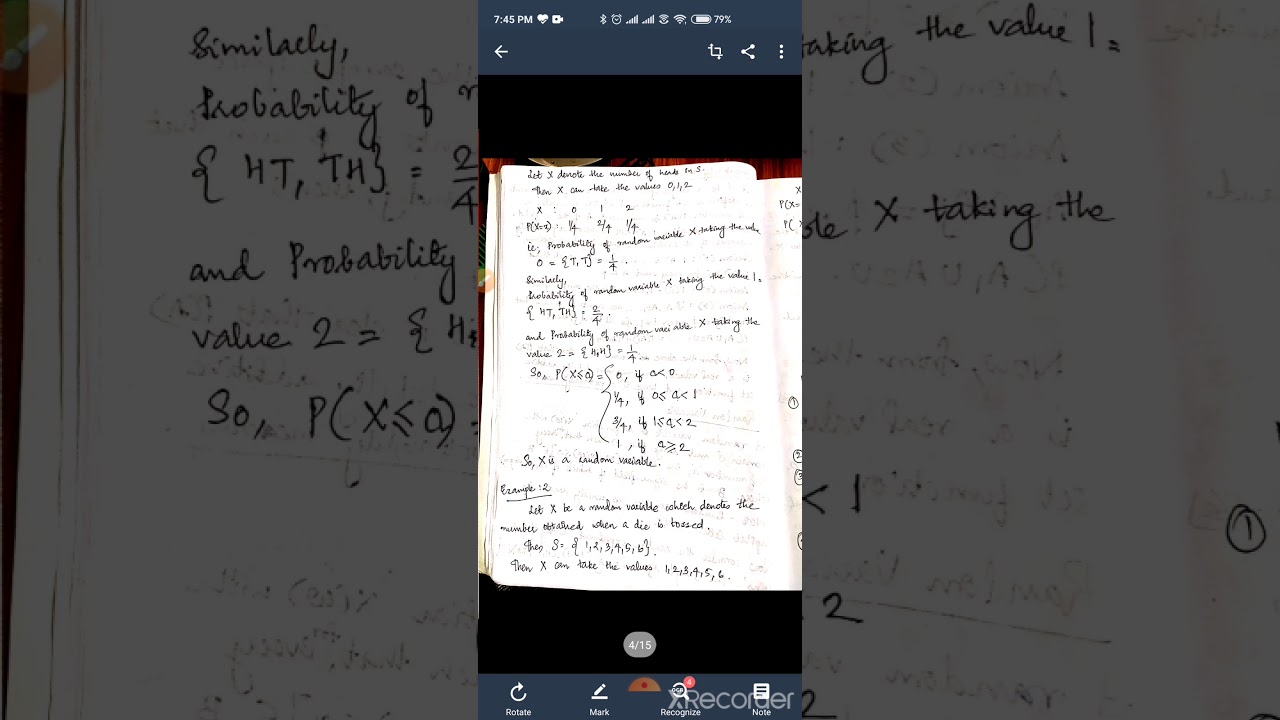 7:45 PM
79%
Let X denote the number of heads in S.
Then X can take the values 0,1,2
X : 0 1 2
P(X=x) : 1/4 2/4 1/4
i.e; Probability of random variable X taking the value
0 = {T,T} = 1/4.
Similarly,
Probability of random variable X taking the value 1 =
{HT, TH} = 2/4.
and Probability of random variable X taking the
value 2 = {H,H} = 1/4.
So, P(X≤a) = { 0, if a<0
1/4, if 0≤a<1
3/4, if 1≤a<2
1, if a≥2
So, X is a random variable.
Example:2
Let X be a random variable which denotes the
number obtained when a die is tossed.
Then S = {1,2,3,4,5,6}.
Then X can take the values 1,2,3,4,5,6.
X
P(X=
P(
①
4/15
Rotate
Mark
OCR
4
Recognize
Note
XRecorder
Similarly,
Probability of
{HT, TH} = 2/4
and Probability
value 2 = {H
So, P(X≤a) =
taking the value 1 =
X taking the
< 1
2
①